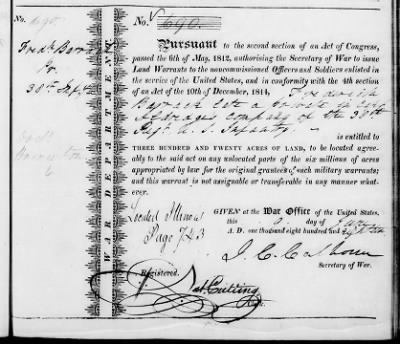 No.
690
Fredk
Jr.
30th
No. 690.
WAR DEPARTMENT.
Pursuant to the second section of an Act of Congress,
passed the 6th of May, 1812, authorising the Secretary of War to issue
Land Warrants to the noncommissioned Officers and Soldiers enlisted
in the service of the United States, and in conformity with the 4th section
of an Act of the 10th of December, 1814, Frederick
a private in
company of the 30th
Regt. U. S. Infantry.
is entitled to
THREE HUNDRED AND TWENTY ACRES OF LAND, to be located agreeably
to the said act on any unlocated parts of the six millions of acres
appropriated by law for the original grantees of such military warrants;
and this warrant is not assignable or transferable in any manner what-
ever.
Located Illinois
Page 743
GIVEN at the War Office of the United States,
this day of
A. D. one thousand eight hundred and
J. C. Calhoun
Secretary of War.
Registered.
Cutting